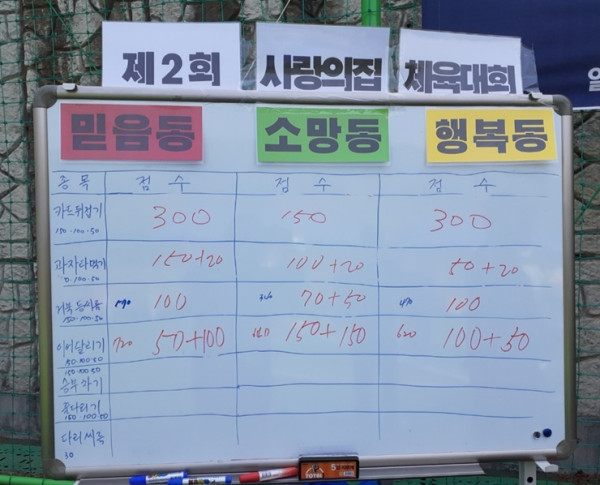 제2회 사랑의집 체육대회
믿음동 소망동 행복동
종목 점수 점수 점수
카드뒤집기 300 150 300
150·100·50
과자따먹기 150+20 100+20 50+20
100·50
100 70+50 100
150·100·50
이어달리기 720 50+100 150+150 620 100+50
150·100·50
150·100·50
승부차기
줄다리기
150·100·50
다리씨름
30